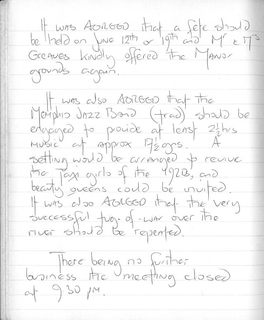 It was AGREED that a fete should
be held on June 12th or 19th and Mr & Mrs
Greaves kindly offered the Manor
grounds again.
It was also AGREED that the
Memphis Jazz Band (trad) should be
engaged to provide at least 2½hrs
music at approx 17½gns. A
setting would be arranged to revive
the Taxi girls of the 1920s, and
beauty queens could be invited.
It was also AGREED that the very
successful tug-of-war over the
river should be repeated.
There being no further
business the meeting closed
at 9 30 pm.